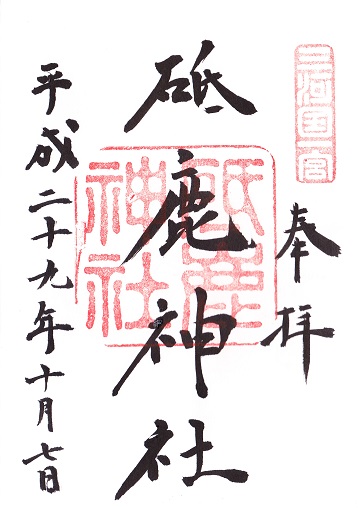 三河國一宮
奉拝
砥鹿神社
砥鹿神社
平成二十九年十月七日